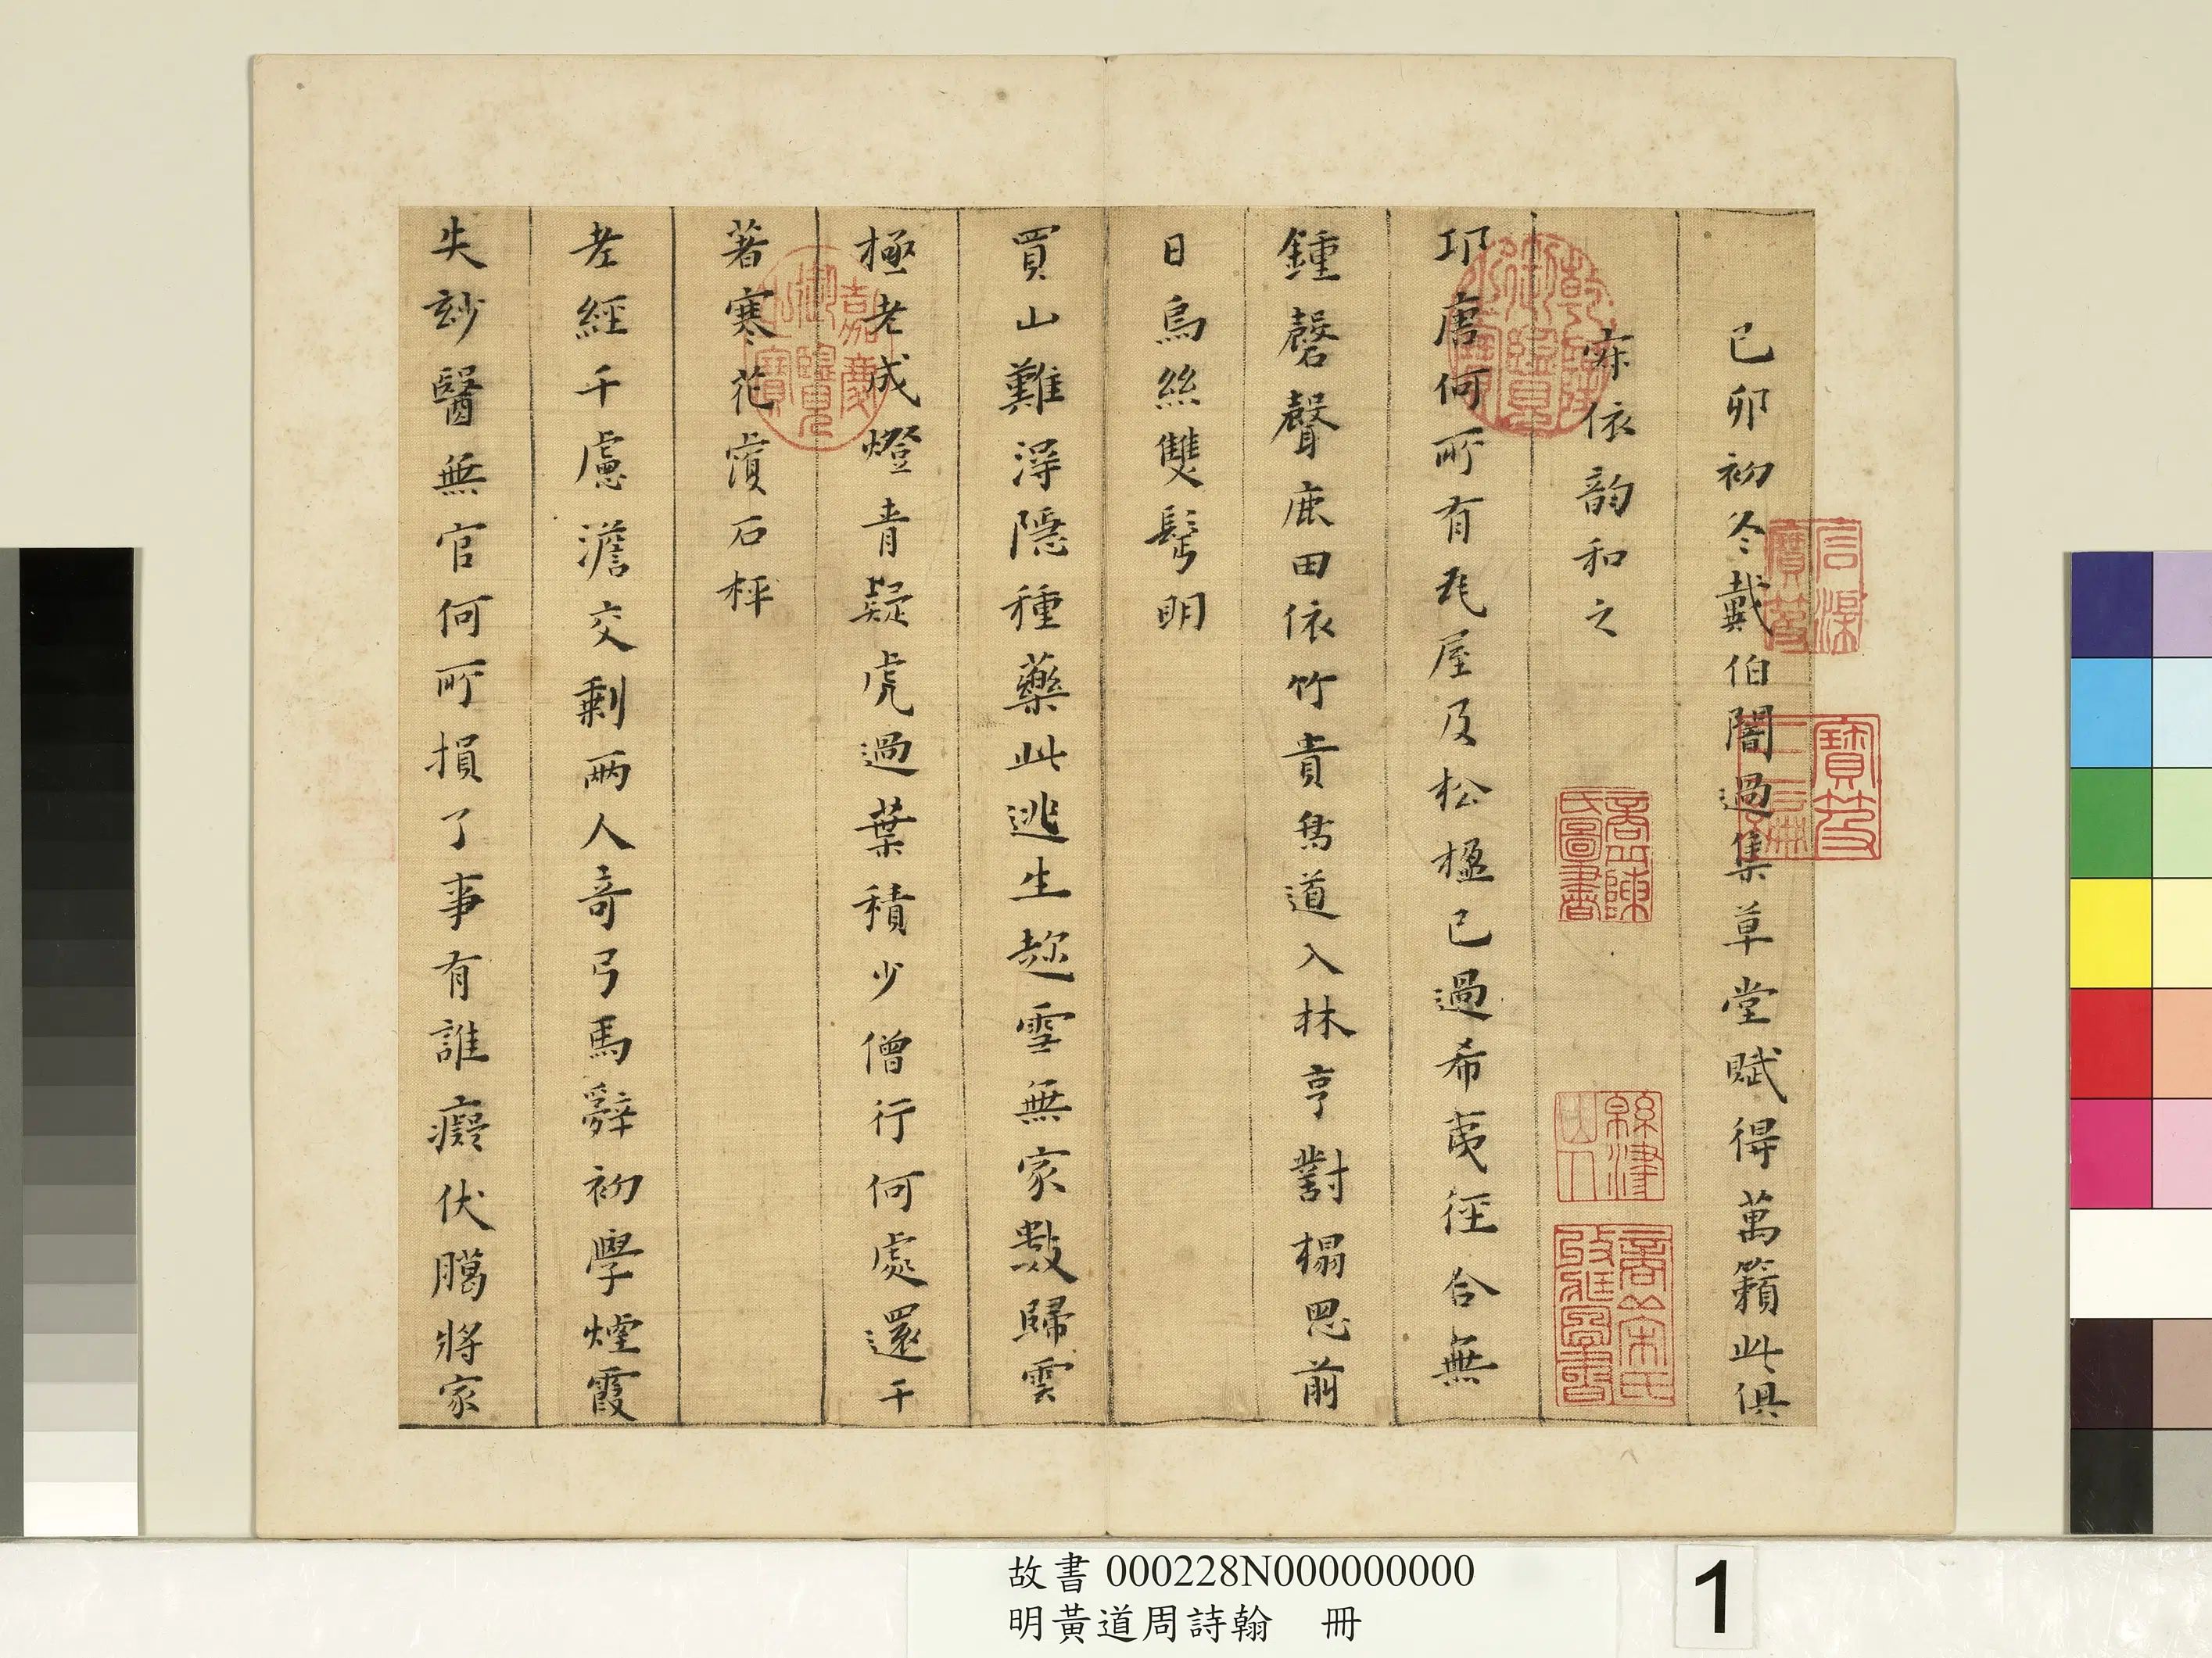 己卯初冬戴伯闇過集草堂賦得萬籟此俱
寂依韵和之
邛唐何所有瓦屋及松楹已過希夷徑合無
鍾磬聲鹿田依竹貴鳥道入林亨對榻思前
日烏絲雙髩明
買山難淂隠種藥此逃生趂雪無家數歸雲
極老成燈青疑虎過葉積少僧行何處還千
著寒花濱石枰
老經千慮澹交剩兩人奇弓馬辭初學煙霞
失妙醫無官何所損了事有誰癡伏臈將家
乾隆御覽之寶
嘉慶御覽之寶
寶笈三編
宣統寶笈
緜津山人
故書 000228N000000000
明黃道周詩翰 冊
1